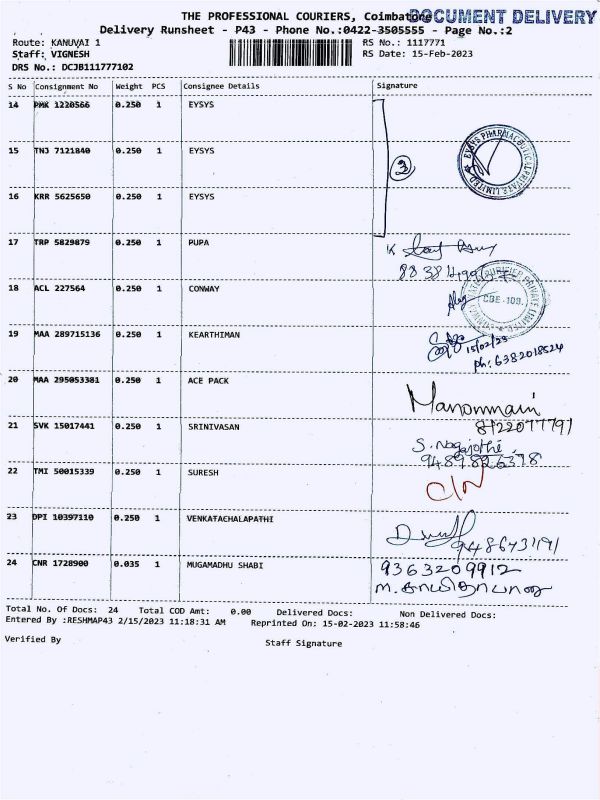 THE PROFESSIONAL COURIERS, Coimbatore
DOCUMENT DELIVERY
Delivery Runsheet - P43 - Phone No.:0422-3505555 - Page No.:2
Route: KANUVAI 1 RS No.: 1117771
Staff: VIGNESH RS Date: 15-Feb-2023
DRS No.: DCJB111777102
S No Consignment No Weight PCS Consignee Details Signature
14 PMK 1220566 0.250 1 EYSYS
EYSYS PHARMACEUTICAL PRIVATE LIMITED
15 TNJ 7121840 0.250 1 EYSYS
3
16 KRR 5625650 0.250 1 EYSYS
17 TRP 5829879 0.250 1 PUPA
18 ACL 227564 0.250 1 CONWAY
CBE-108.
19 MAA 289715136 0.250 1 KEARTHIMAN
15/02/23
ph: 6382018524
20 MAA 295053381 0.250 1 ACE PACK
Manonmani
8122077791
21 SVK 15017441 0.250 1 SRINIVASAN
S. Nagajothi
9489826378
22 TMI 50015339 0.250 1 SURESH
C/N
23 DPI 10397110 0.250 1 VENKATACHALAPATHI
9486731191
24 CNR 1728900 0.035 1 MUGAMADHU SHABI
9363209912
Total No. Of Docs: 24 Total COD Amt: 0.00 Delivered Docs: Non Delivered Docs:
Entered By :RESHMAP43 2/15/2023 11:18:31 AM Reprinted On: 15-02-2023 11:58:46
Verified By Staff Signature